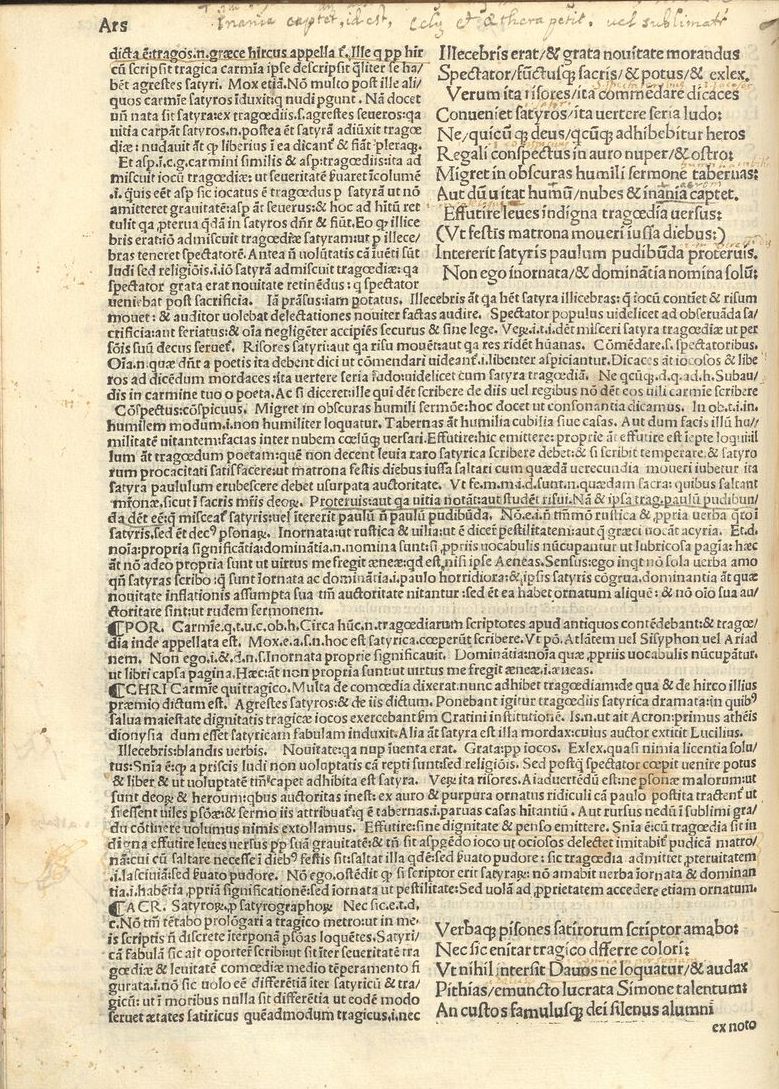 Ars
Inania captet, id est, celum et æthera petit. vel sublimati
dicta ē:tragos.n.græce hircus appellat̄. Ille q pp hir
cū scripsit tragica carmīa ipse descripsit q̄liter se ha/
bēt agrestes satyri. Mox etiā. Nō multo post ille ali/
quos carmīe satyros īduxit:q nudi pgunt. Nā docet
uñ nata sit satyra:ex tragœdiis.s.agrestes seueros:qa
uitia carpāt satyros.n.postea ēt satyrā adiūxit tragœ
diæ: nudauit āt ꝙ liberius ī ea dicant̄ & fiāt pleraq;.
Et asp.i.e.g.carmini similis & asp:tragœdiis:ita ad
miscuit iocū tragœdiæ: ut seueritatē ẜuaret īcolumē
.i. q̄uis eēt asp sic iocatus ē tragœdus p satyrā ut nō
amitteret grauitatē:asp āt seuerus:& hoc ad hitū ret
tulit qa ,pterua q̄dā in satyros dn̄r & fiūt. Eo ꝙ illice
bris eratiō admiscuit tragœdiæ satyram:ut p illece/
bras teneret spectatorē. Antea ñ uolutatis cā īuēti sūt
ludi sed religiōis.i.iō satyrā admiscuit tragœdiæ: qa
spectator grata erat nouitate retinēdus : q spectator
Illecebris erat/& grata nouitate morandus
Spectator/fūctusq; sacris/& potus/& exlex.
Verum ita risores/ita commēdare dicaces
Conueniet satyros/ita uertere seria ludo:
Ne/quicūq; deus/q̄cūq; adhibebitur heros
Regali conspectus in auro nuper/& ostro:
Migret in obscuras humili sermone tabernas:
Aut dū uitat humū/nubes & inania captet.
Effutire leues indigna tragœdia uersus:
(Vt festis matrona moueri iussa diebus:)
Intererit satyris paulum pudibūda proteruis.
Non ego inornata/& dominātia nomina solū:
ueniebat post sacrificia. Iā prāsus:iam potatus. Illecebris āt qa hēt satyra illicebras: q̄ iocū contīet & risum
mouet : & auditor uolebat delectationes nouiter factas audire. Spectator populus uidelicet ad obseruāda sa/
crificia:aut feriatus:& oīa negligēter accipiēs securus & sine lege. Veꝝ.i.t.i.dēt misceri satyra tragœdiæ ut per
sōis suū decus seruet̄. Risores satyri:aut qa risu mouēt:aut qa res ridēt hūanas. Cōmēdare.s.spectatoribus.
Oīa.n:quæ dn̄r a poetis ita debent dici ut cōmendari uideant̄.i.libenter aspiciantur.Dicaces āt iocosos & libe
ros ad dicēdum mordaces:ita uertere seria ludo:uidelicet cum satyra tragœdiā. Ne qcūq;.d.q.ad.h.Subau/
dis in carmine tuo o poeta.Ac si diceret:ille qui dēt scribere de diis uel regibus nō dēt eos uili carmie scribere
Cōspectus:cōspicuus. Migret in obscuras humili sermōe:hoc docet ut consonantia dicamus. In ob.t.i.in.
humilem modum.i.non humiliter loquatur. Tabernas āt humilia cubilia siue casas. Aut dum facis illū hu//
militatē uitantem:facias inter nubem cœlūq; uersari.Effutire:hic emittere: proprie āt effutire est īepte loqui:il
lum āt tragœdum poetam:quē non decent leuia raro satyrica scribere debet:& si scribit temperare & satyro
rum procacitati satisfacere:ut matrona festis diebus iussa saltari cum quædā uerecundia moueri iubetur ita
satyra paululum erubescere debet usurpata auctoritate. Vt fe.m.m.i.d.sunt.n.quædam sacra: quibus saltant
mr̄onæ.sicut ī sacris mr̄is deoꝝ. Proteruis:aut qa uitia notāt:aut studēt risui.Nā & ipsa trag.paulū pudibun/
da dēt eē:q̄ misceat̄ satyris:uel ītererit paulū ñ paulū pudibūda. Nō.e.i.ñ tm̄mō rustica & ,ppria uerba q̄roī
satyris.sed ēt dec⁹ psonaꝝ. Inornata:ut rustica & uilia:ut ē dicer̄ pestilitatem:aut q̄ græci uocāt acyria. Et.d.
noīa:propria significātia:dominātia.n.nomina sunt:si ,ppriis uocabulis nūcupantur ut lubricosa pagīa: hæc
āt nō adeo propria sunt ut uirtus me fregit æneæ:qd est,nisi ipse Aeneas.Sensus:ego inqt nō sola uerba amo
qn̄ satyras scribo :q̄ sunt īornata ac dominātia.i.paulo horridiora:&,ipsis satyris cōgrua.dominantia āt quæ
nouitate inflationis assumpta sua tm̄ auctoritate nitantur :sed ēt ea habet ornatum aliquē : & nō oīo sua au/
ctoritate sint:ut rudem sermonem.
¶POR. Carmīe.q.t.u.c.ob.h.Circa hūc.n.tragœdiarum scriptores apud antiquos contēdebant:& tragœ/
dia inde appellata est. Mox.e.a.s.n.hoc est satyrica.cœperūt scribere. Vt pō. Atlātem uel Sisyphon uel Ariad
nem. Non ego.i.& .d.n.s.Inornata proprie significauit. Dominātia:noīa quæ ,ppriis uocabulis nūcupātur.
ut libri capsa pagina.Hæc:āt non propria sunt:ut uirtus me fregit æneæ.i.æneas.
¶CHRI Carmie qui tragico.Multa de comœdia dixerat:nunc adhibet tragœdiam:de qua & de hirco illius
præmio dictum est. Agrestes satyros:& de iis dictum. Ponebant igitur tragœdiis satyrica dramata:in quib⁹
salua maiestate dignitatis tragicæ iocos exercebant:ẜm Cratini institutionē. Is.n.ut ait Acron:primus athēis
dionysia dum esset satyricam fabulam induxit.Alia āt satyra est illa mordax:cuius auctor extitit Lucilius.
Illecebris:blandis uerbis. Nouitate:qa nup īuenta erat. Grata:pp iocos. Exlex.quasi nimia licentia solu/
tus:Snīa ē:ꝙ a priscis ludi non uoluptatis cā repti sunt:sed religiōis. Sed postq̄ spectator cœpit uenire potus
& liber & ut uoluptatē tm̄ caꝑet adhibita est satyra. Veꝝ ita risores.Aīaduertēdū est:ne psonæ malorum:ut
sunt deoꝝ & heroum:qbus auctoritas inest: ex auro & purpura ornatus ridiculi cā paulo postita tractent̄ ut
si essent uiles psōæ:& sermo iis attribuat̄:q ē tabernas.i.paruas casas hitantiū . Aut rursus nedū ī sublimi gra/
du cōtinere uolumus nimis extollamus. Effutire:sine dignitate & penso emittere. Snīa ē:cū tragœdia sit in
digna effutire leues uersus pp suā grauitatē:& tn̄ sit aspgēdo ioco ut ociosos delectet imitabit̄ pudicā matro/
nā:cui cū saltare necesse ī dieb⁹ festis sit:saltat illa qdē:sed ẜuato pudore : sic tragœdia admittet ,pteruitatem
.i.lasciuiā:sed ẜuato pudore. Nō ego.ostēdit ꝙ si scriptor erit satyraꝝ: nō amabit uerba īornata & dominan
tia.i.habētia ,ppriā significationē:sed īornata ut pestilitate:Sed uolā ad ,pprietatem accedere etiam ornatum.
¶ACR. Satyroꝝ,p satyrographoꝝ Nec sic.e.t.d.
c.Nō tm̄ tētabo prolōgari a tragico metro:ut in me/
is scriptis ñ discrete iterponā psōas loquētes.Satyri/
cā fabulā sic ait oportet̄ scribi:ut sit iter seueritatē tra
gœdiæ & leuitatē comœdiæ medio tēperamento fi
gurata.i.nō sic uolo eē differētiā iter satyricū & tra/
gicū: ut ī moribus nulla sit differētia ut eodē modo
seruet ætates satiricus quēadmodum tragicus.i.nec
Verbaq; pisones satirorum scriptor amabo:
Nec sic enitar tragico dfferre colori:
Vt nihil intersit Dauos ne loquatur/& audax
Pithias/emuncto lucrata Simone talentum:
An custos famulusq; dei silenus alumni
ex noto